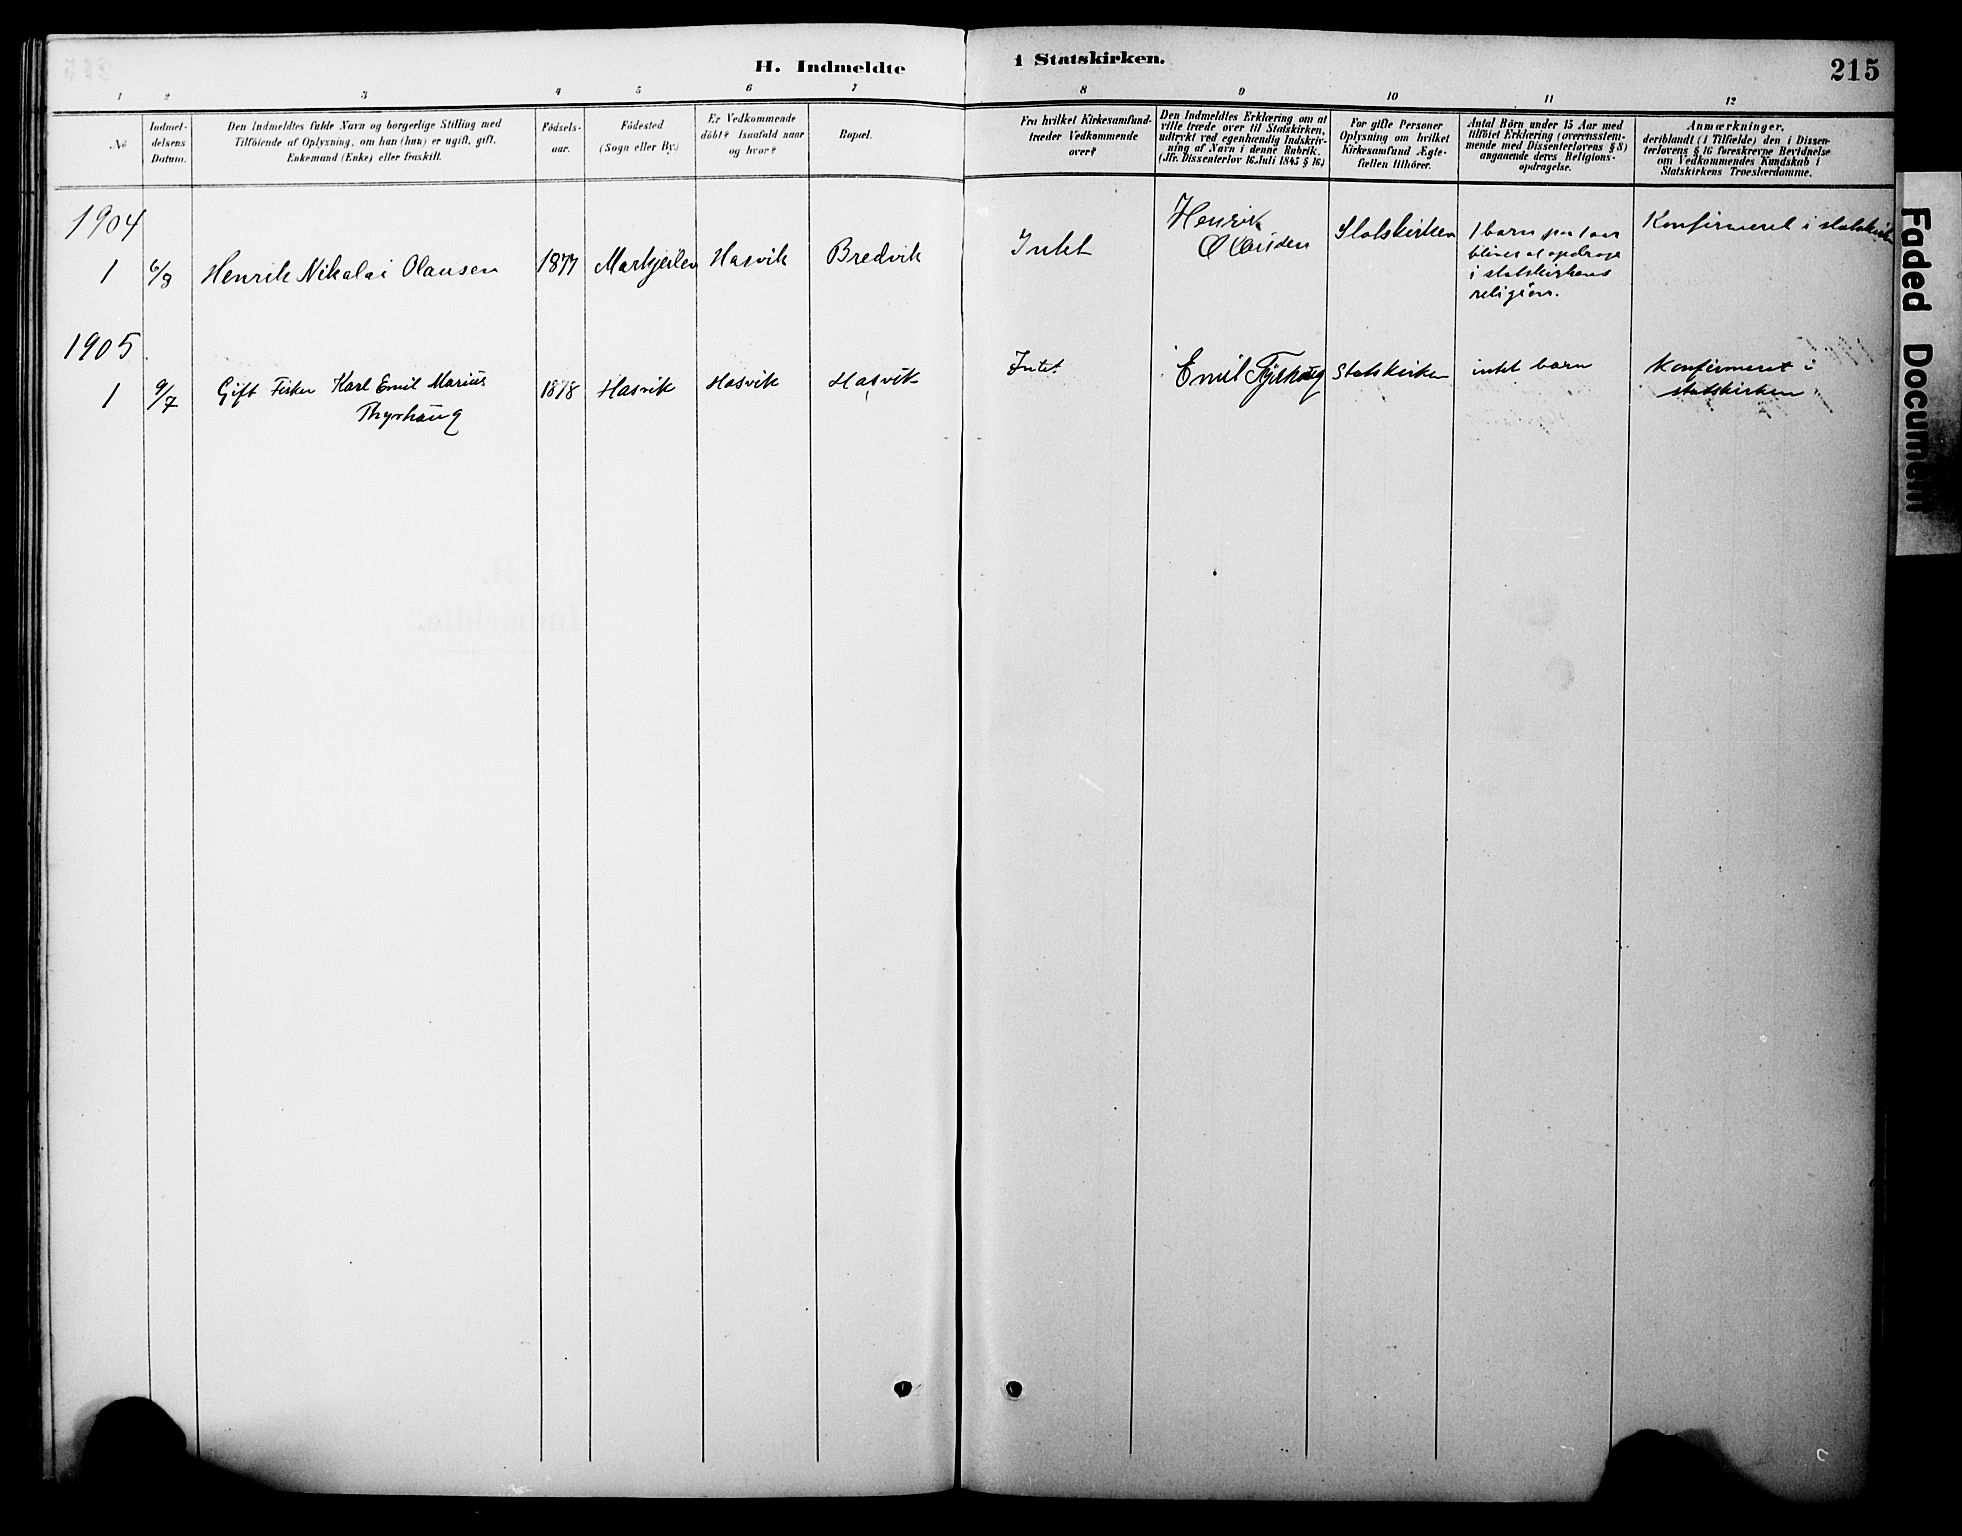 H. Indmeldte i Statskirken. 215
1 2 3 4 5 6 7 8 9 10 11 12
No
Indmel-
delsens
Datum.
Den Indmeldtes fulde Navn og borgerlige Stilling med
Tilföiende af Oplysning, om han (hun) er ugift, gift,
Enkemand (Enke) eller fraskilt.
Födsels-
aar.
Födested
(Sogn eller By.)
Er Vedkommende
döbt? Isaafald naar
og hvor?
Bopæl.
Fra hvilket Kirkesamfund-
træder Vedkommende
over?
Den Indmeldtes Erklæring om at
ville træde over til Statskirken,
udtrykt ved egenhændig Indskriv-
ning af Navn i denne Rubrik.
(Jfr. Dissenterlov 16. Juli 1845 § 16)
For gifte Personer
Oplysning om hvilket
Kirkesamfund Ægte-
fællen tilhörer.
Antal Börn under 15 Aar med
tilföiet Erklæring (overensstem-
mende med Dissenterlovens § 8)
angaaende deres Religions-
opdragelse.
Anmærkninger,
deriblandt (i Tilfælde) den i Dissen-
terlovens § 16 foreskrevne Bevidnelse
om Vedkommendes Kundskab i
Statskirkens Troeslærdomme.
1904
1 6/8 Henrik Nikolai Olausen 1877 Hasvik Bredvik Intet
Henrik
Olausen
Statskirken
1 barn paa 1 aar
blives at opdrage
i statskirkens
religion.
Konfirmeret i statskirken
1905
1 9/7 Gift Fisker Karl Emil Marius
Thyrhaug
1878 Hasvik Hasvik Hasvik Intet Emil Tyrhaug Statskirken intet barn
Konfirmeret i
statskirken
Faded Document